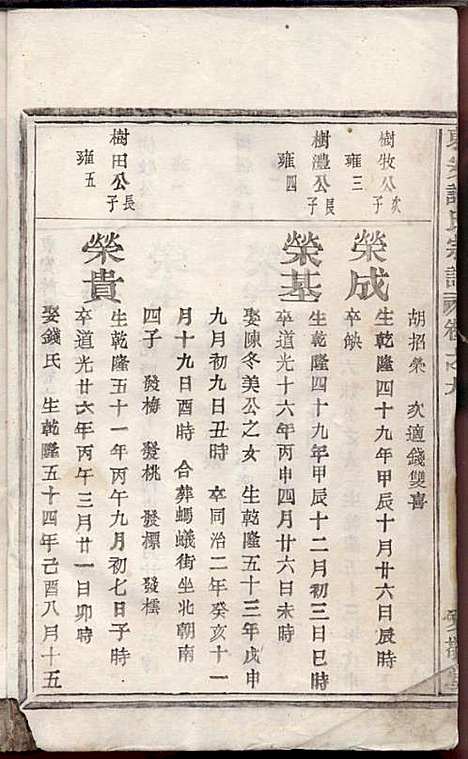 宗譜
卷之九
胡招榮　次適錢雙喜
樹牧公次子
雍三
榮成
生乾隆四十九年甲辰十月廿六日辰時
卒缺
樹灃公長子
雍四
榮基
生乾隆四十九年甲辰十二月初三日巳時
卒道光十六年丙申四月廿六日未時
娶陳冬美公之女　生乾隆五十三年戊申
九月初九日丑時　卒同治二年癸亥十一
月十九日酉時　合葬螞蟻街坐北朝南
四子　發梅　發桃　發標　發檽
樹田公長子
雍五
榮貴
生乾隆五十一年丙午九月初七日子時
卒道光廿六年丙午三月廿一日卯時
娶錢氏　生乾隆五十四年己酉八月十五